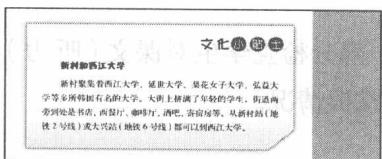 文化小贴士
新村和西江大学
新村聚集着西江大学、延世大学、梨花女子大学、弘益大
学等多所韩国有名的大学。大街上挤满了年轻的学生，街道两
旁到处是书店、西餐厅、咖啡厅、酒吧、寄宿房等。从新村站(地
铁2号线)或大兴站(地铁6号线)都可以到西江大学。